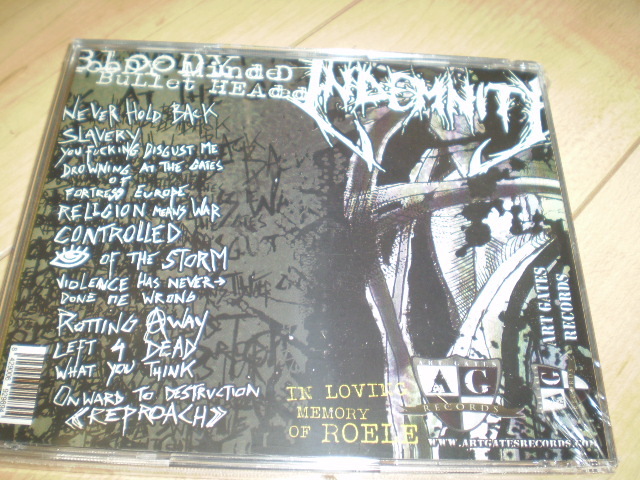 BLOODY
Minded
Bullet HEAded
INDEMNITY
NEVER HOLD BACK
SLAVERY
YOU FUCKING DISGUST ME
DROWNING AT THE GATES
OF
FORTRESS EUROPE
RELIGION MEANS WAR
CONTROLLED
OF THE STORM
VIOLENCE HAS NEVER→
DONE ME WRONG
ROTTING AWAY
LEFT 4 DEAD
WHAT YOU THINK
ONWARD TO DESTRUCTION
«REPROACH»
IN LOVING
MEMORY
OF ROELE
ART GATES
A G
RECORDS
WWW.ARTGATESRECORDS.COM
ART GATES
RECORDS
A G